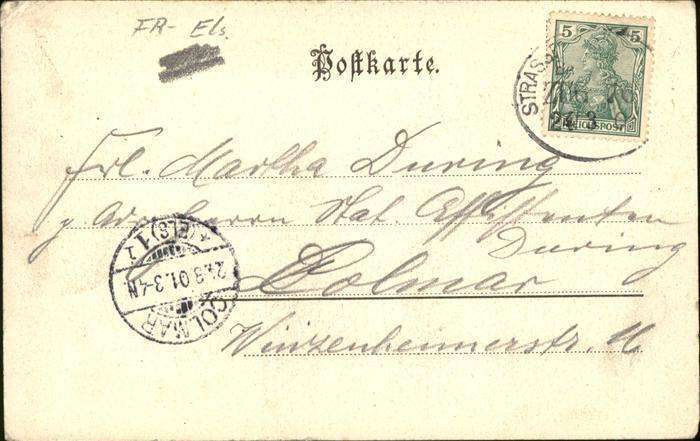 FR- Els.
Postkarte.
5 5
REICHSPOST
STRASS
ZUG
3
Frl. Martha Düring
Herrn Stat. Assistenten
Düring
Colmar
Winzenheimerstr.
COLMAR
(ELS) 1
3.01.3-4N